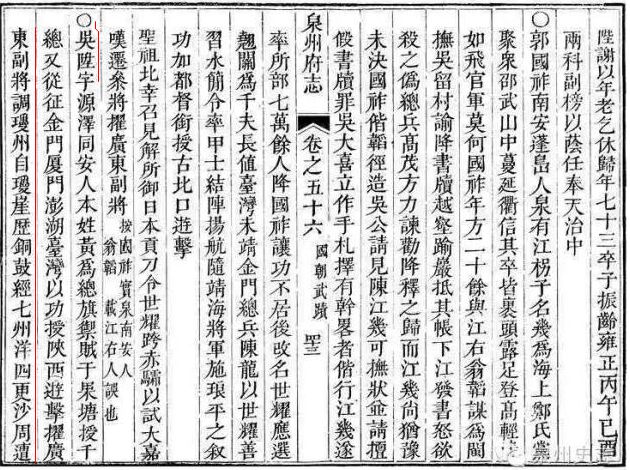 陛謝以年老乞休歸年七十三卒子振齡雍正丙午己酉
兩科副榜以蔭任奉天治中
○郭國祚南安蓬島人泉有江柺子名幾為海上鄭氏黨
聚衆邵武山中蔓延衢信其卒皆裹頭露足登高輕
如飛官軍莫何國祚年方二十餘與江右翁韜謀為閩
撫吳留村諭降書牘越壑踰巖抵其帳下江發書怒欲
殺之偽總兵髙茂方力諫勸降釋之歸而江幾尚猶豫
未決國祚偕韜徑造吳公請見陳江幾可撫狀並請擅
假書牘罪吳大喜立作手札擇有幹畧者偕行江幾遂
泉州府志
卷之五十六
國朝武蹟
率所部七萬餘人降國祚讓功不居後改名世耀應選
翹關為千夫長值臺灣未靖金門總兵陳龍以世耀善
習水簡令率甲士結陣揚航隨靖海將軍施琅平之叙
功加都督銜授古北口遊擊
聖祖北幸召見解所御日本貢刀令世耀跨赤驦以試大嘉
嘆遷叅將擢廣東副將
按國祚實泉南安人
翁韜載江右人誤也
○吳陞字源澤同安人本姓黃為總旗禦賊于果塘授千
總又從征金門厦門澎湖臺灣以功授陝西遊擊擢廣
東副將調瓊州自瓊崖歷銅鼓經七州洋四更沙周遭